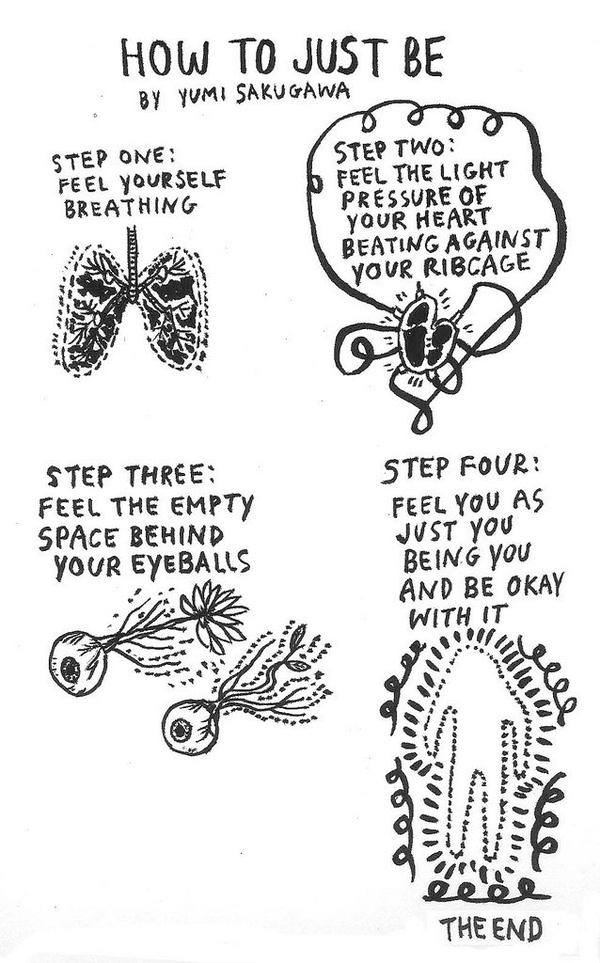 HOW TO JUST BE
BY YUMI SAKUGAWA
STEP ONE:
FEEL YOURSELF
BREATHING
STEP TWO:
FEEL THE LIGHT
PRESSURE OF
YOUR HEART
BEATING AGAINST
YOUR RIBCAGE
STEP THREE:
FEEL THE EMPTY
SPACE BEHIND
YOUR EYEBALLS
STEP FOUR:
FEEL YOU AS
JUST YOU
BEING YOU
AND BE OKAY
WITH IT
THE END